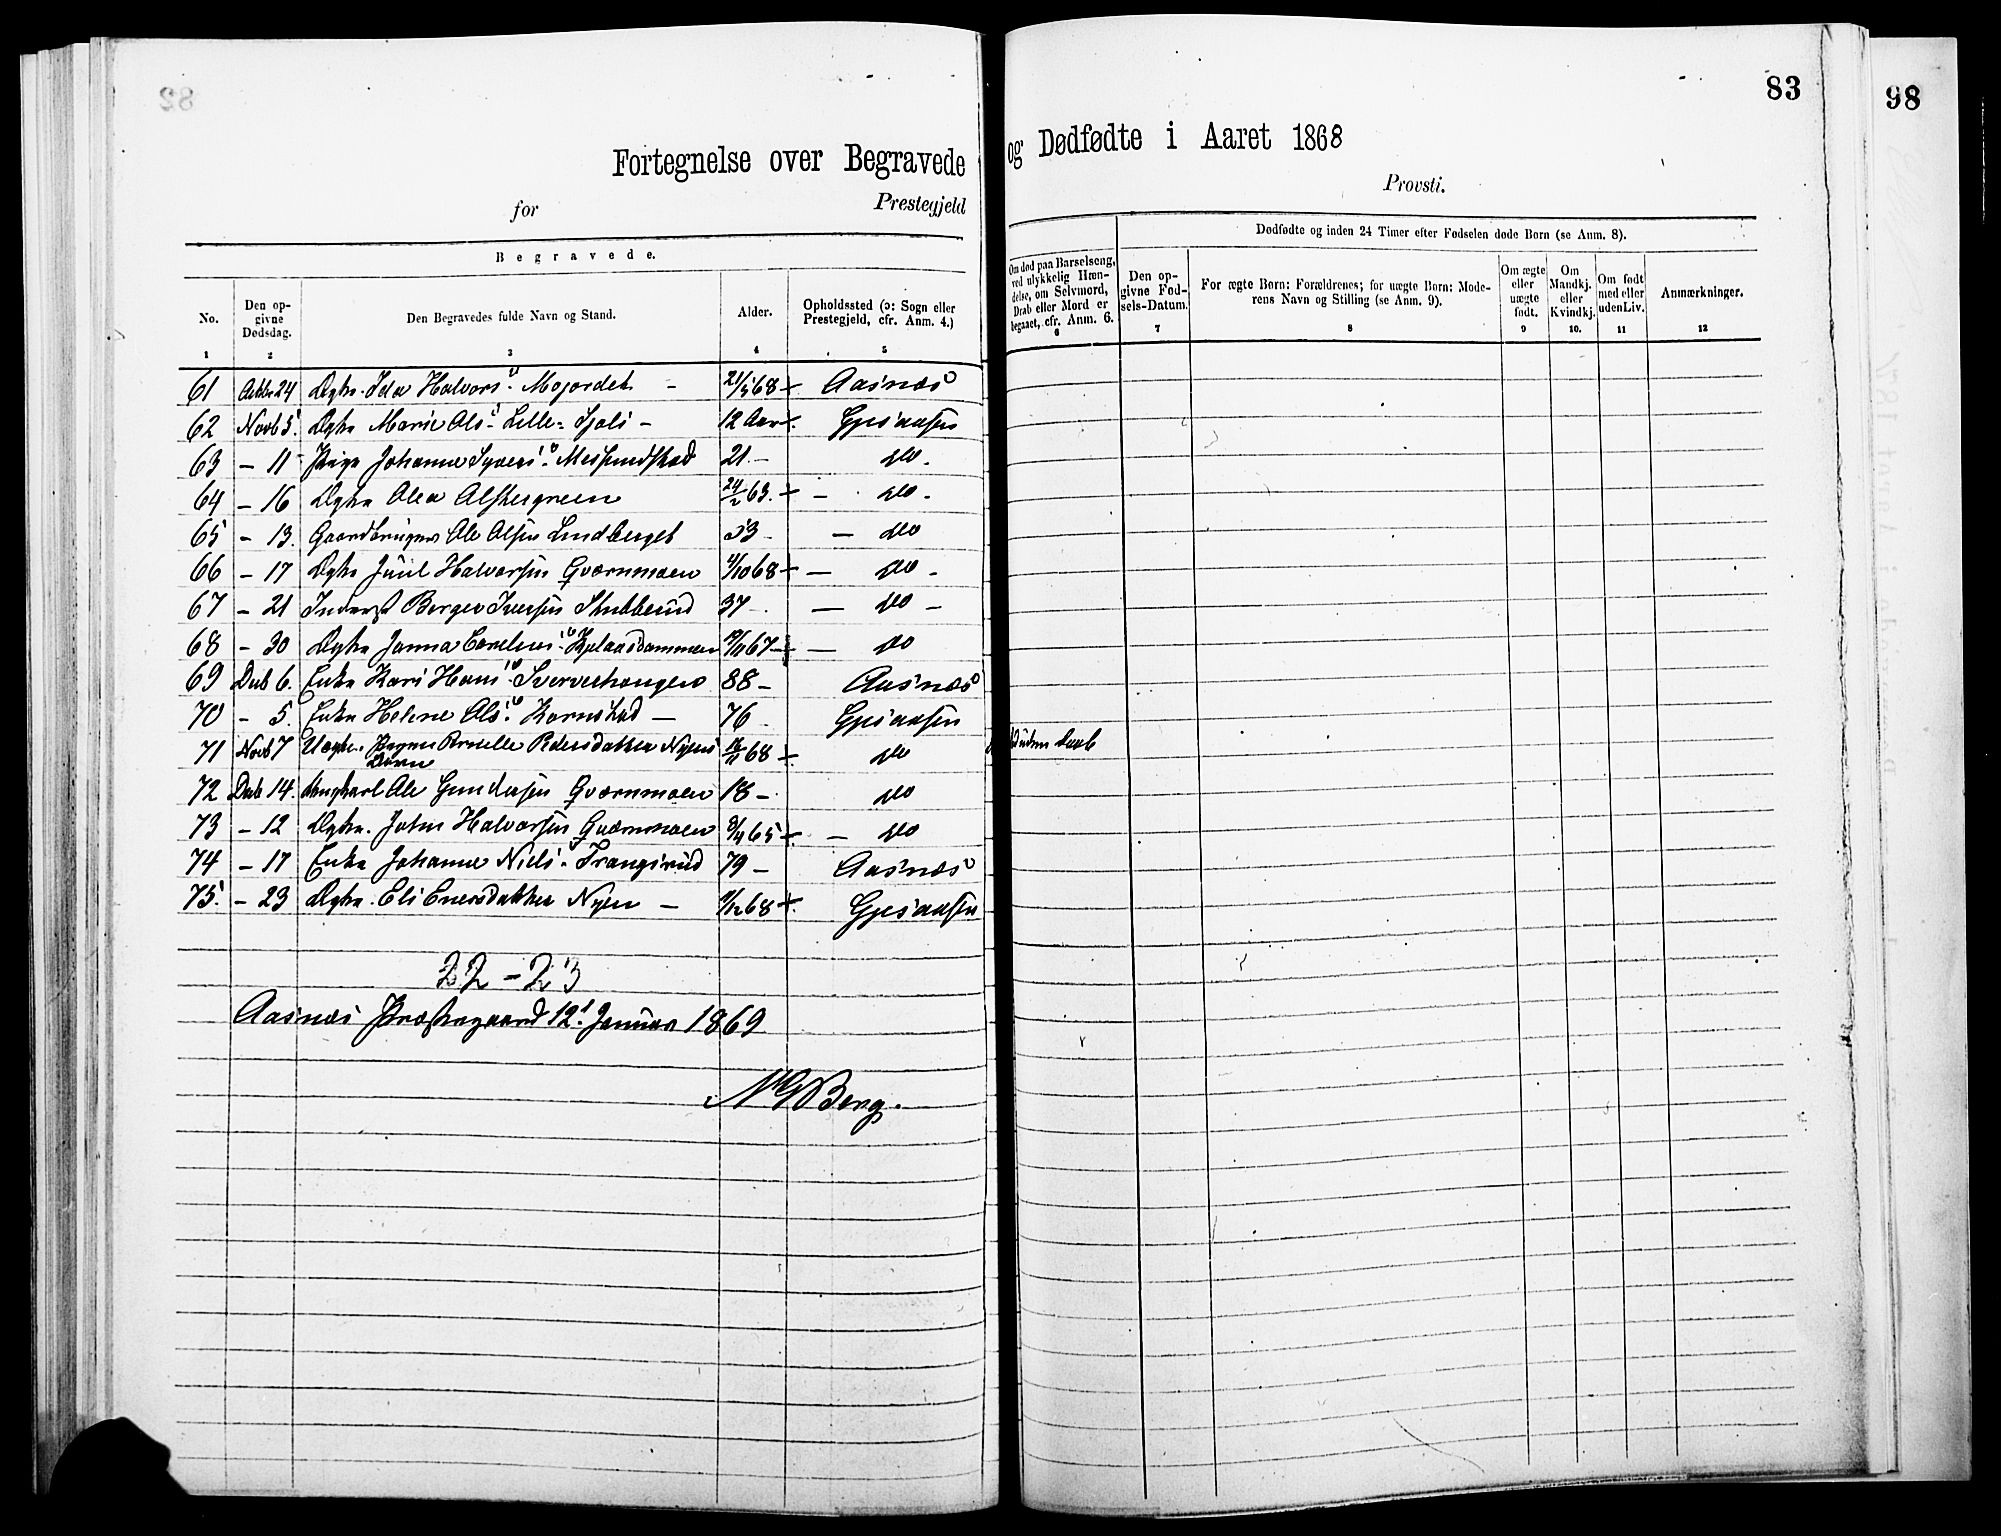 82
83
98
Fortegnelse over Begravede og Dødfødte i Aaret 1868
for Prestegjeld Provsti.
Begravede.
Dødfødte og inden 24 Timer efter Fødselen døde Børn (se Anm. 8).
No. Den opgivne Dødsdag. Den Begravedes fulde Navn og Stand. Alder. Opholdssted (ɔ: Sogn eller Prestegjeld, cfr. Anm. 4.) Om død paa Barselseng, ved ulykkelig Hændelse, om Selvmord, Drab eller Mord er begaaet, cfr. Anm. 6. Den opgivne Fødsels-Datum. For ægte Børn: Forældrenes; for uægte Børn: Moderens Navn og Stilling (se Anm. 9). Om ægte eller uægte født. Om Mandkj. eller Kvindkj. Om født med eller uden Liv. Anmærkninger.
1 2 3 4 5 6 7 8 9 10. 11 12
61 24 Ida Halvors Mojordet - 68 Aasnæs
62 Novb 5. Marie Ols Lille- 12 Aar Gjesaasen
63 - 11 Pige Johanne 21 - do -
64 - 16 Olea 24/2 63. - do -
65 - 13. Gaardbruger Ole Olsen Lindberget 53 - - do
66 - 17 Juul Halvorsen Qvernmoen 68 - do -
67 - 21 Inderst Berger Iversen Stubberud 37 - - do -
68 - 30 Janna 67 - do
69 Decb 6. Enke Kari Hans 88 - Aasnæs
70 - 5. Enke Helene Ols Kornstad - 76 - Gjesaasen
71 Novb 7 Pigen Pedersdatter Nyens Barn 68 do uden Daab
72 Decb 14. Ungkarl Ole Gundersen Qvernmoen 18 - do
73 - 12 John Halvorsen Qvernmoen 65 - do
74 - 17 Enke Johanne Niels Trangsrud 79 - Aasnæs
75. - 23 Eli Enersdatter Nyen - 68 Gjesaasen
22 - 23
Aasnæs Præstegaard 12. Januar 1869
Berg.